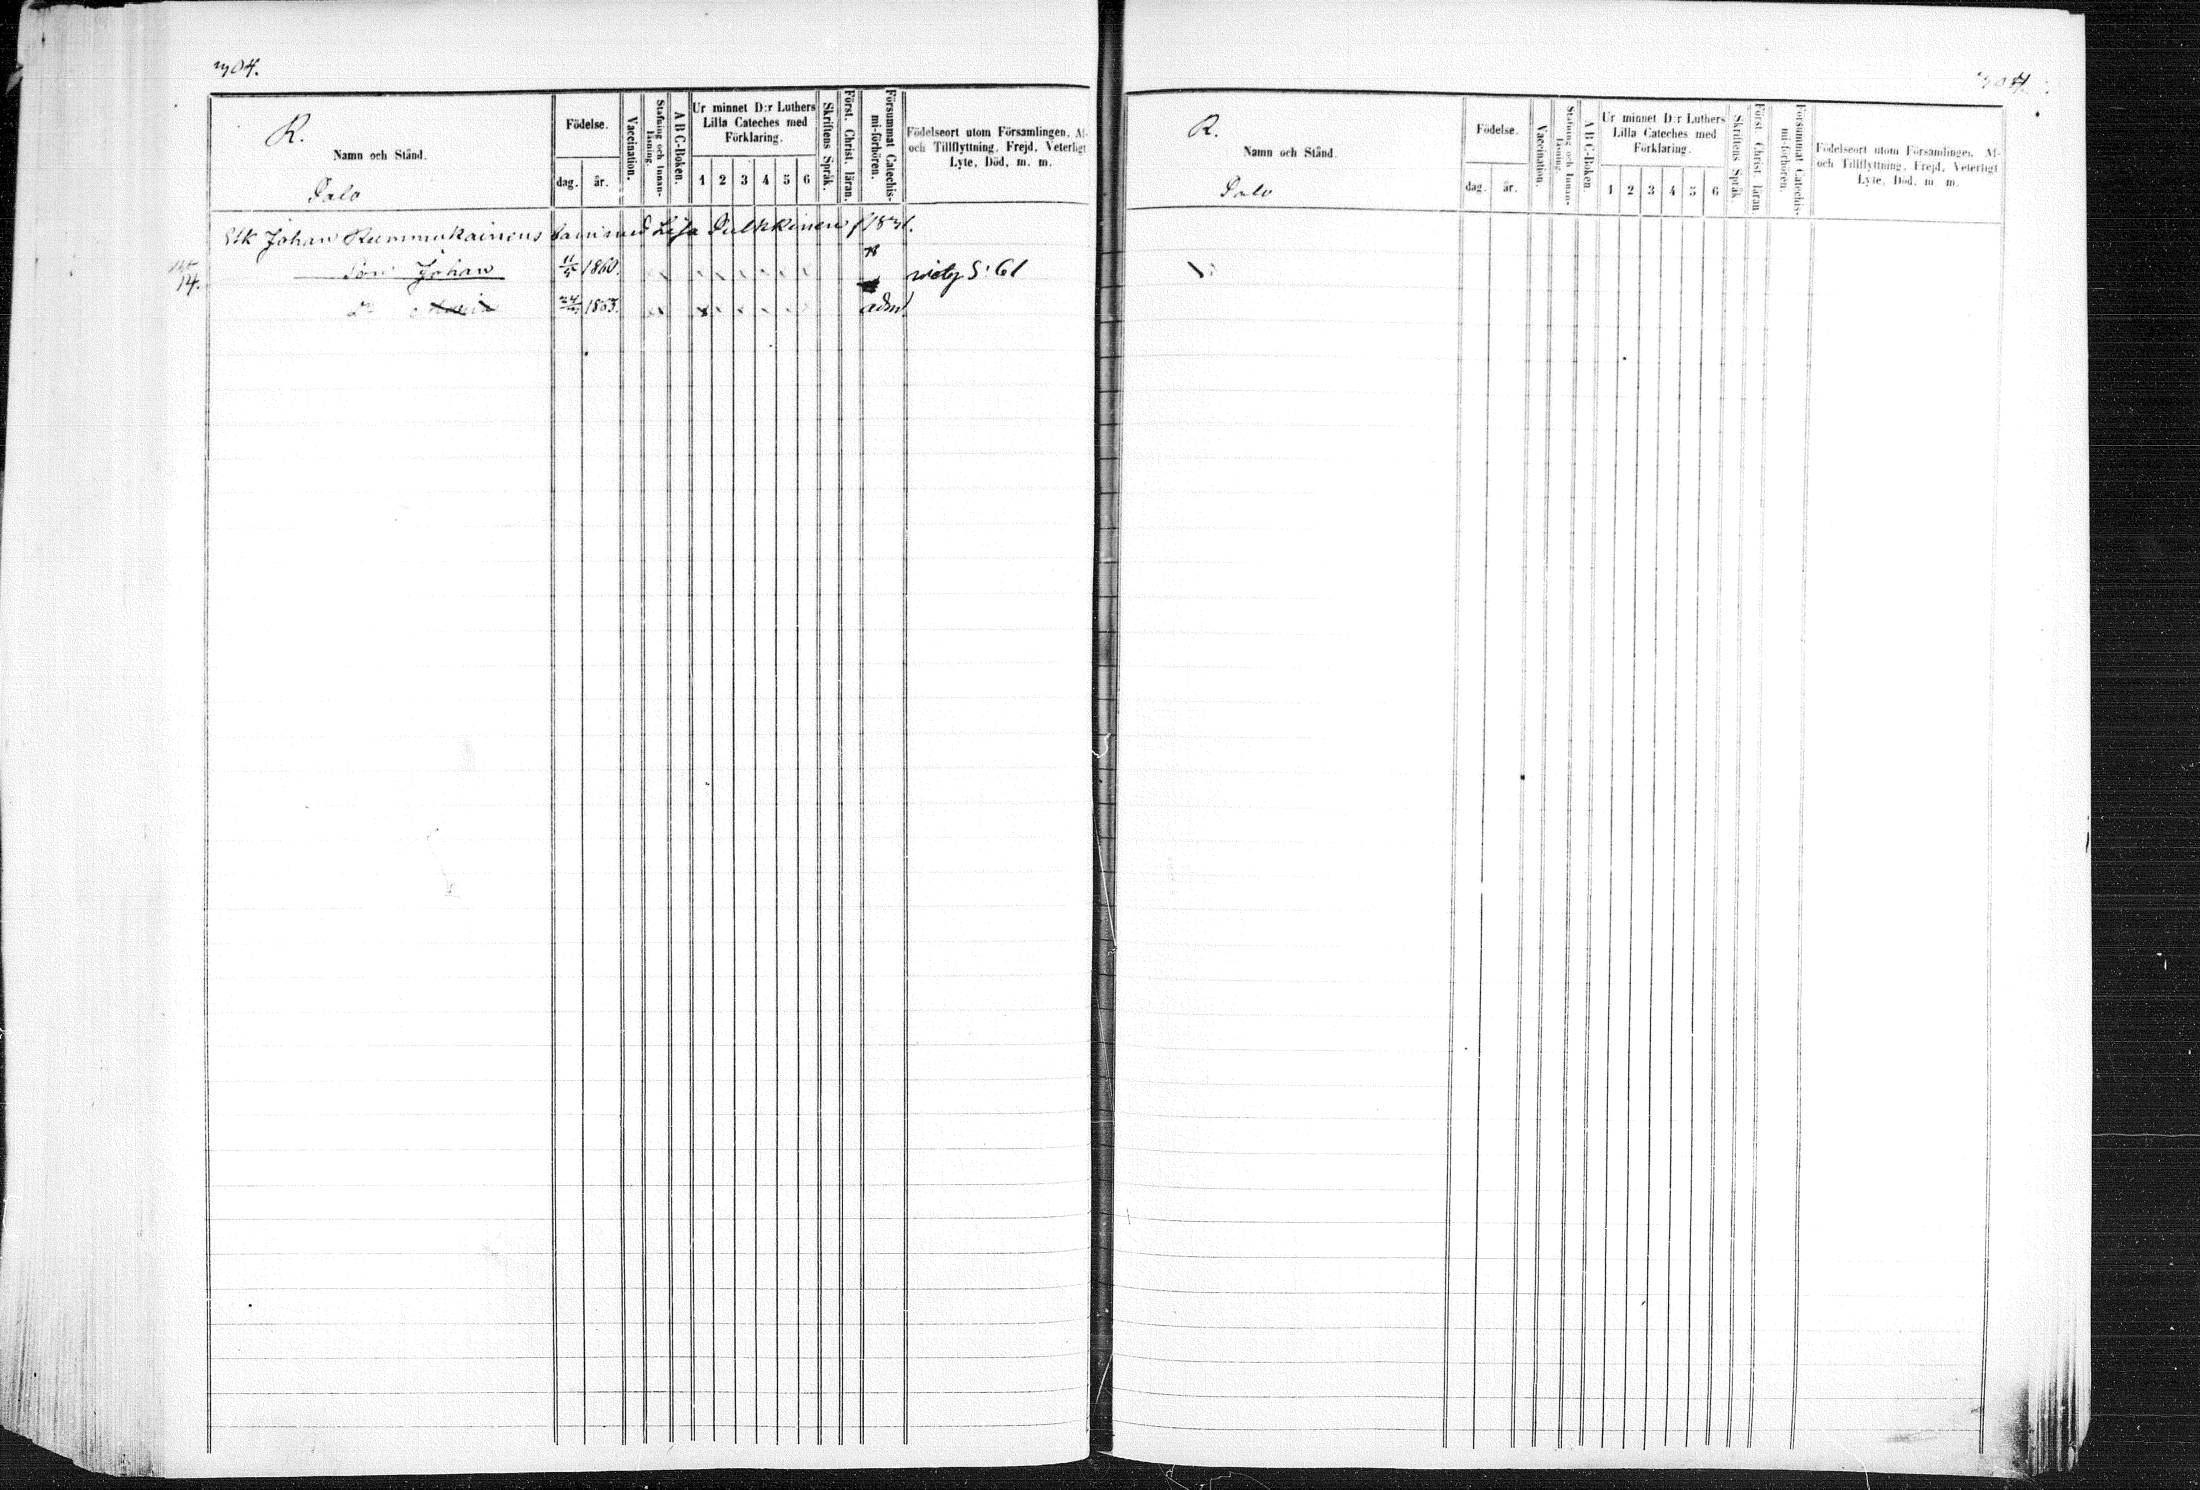 304.
R.
Namn och Stånd.
Salo
Födelse.
dag.
år.
Vaccination.
Stafning och Innan-läsning.
A B C-Boken.
Ur minnet D:r Luthers
Lilla Cateches med
Förklaring.
1 2 3 4 5 6
Skriftens Språk.
Först. Christ. läran.
Försummat Catechis-
mi-förhören.
Födelseort utom Församlingen, Af-
och Tillflyttning, Frejd, Veterligt
Lyte, Död, m. m.
Johan Rummukainens barn med Lisa Pulkkinen
Son Johan 11/5 1860.
14.
1863. adm.
304
R.
Namn och Stånd.
Salo
Födelse.
dag.
år.
Vaccination.
Stafning och Innan-läsning.
A B C-Boken.
Ur minnet D:r Luthers
Lilla Cateches med
Förklaring.
1 2 3 4 5 6
Skriftens Språk
Först. Christ. läran.
Försummat Catechis-
mi-förhören.
Födelseort utom Församlingen, Af-
och Tillflyttning, Frejd, Veterligt
Lyte, Död, m m.